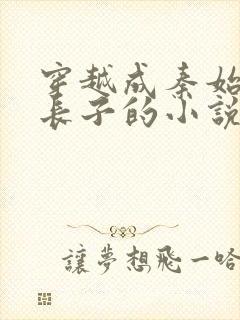 穿越成秦始
長子的小說
讓夢想飛一哈